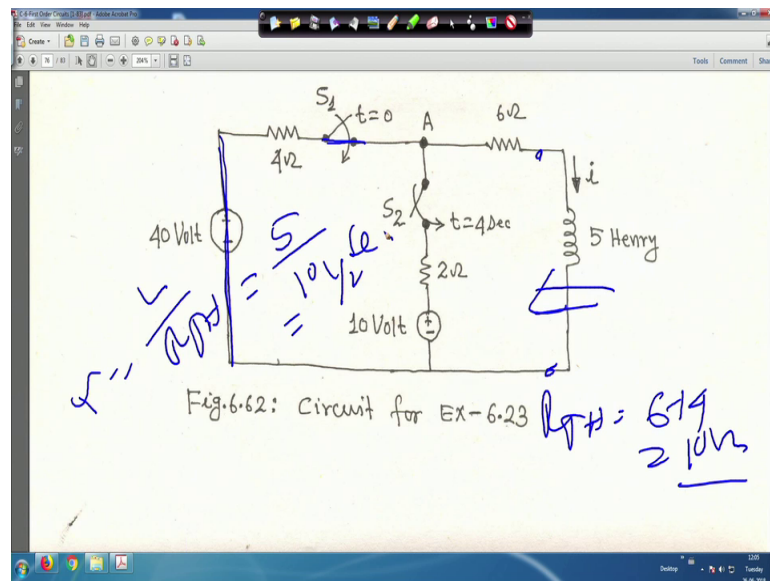 C-6-First Order Circuits [1-83].pdf - Adobe Acrobat Pro
File Edit View Window Help
Create
76 / 83 204% Tools Comment Share
S1 t=0 A 6Ω
4Ω
i
S2 t=4 Sec
40 Volt 5 Henry
2Ω
10 Volt
5
10
=
Fig.6.62: Circuit for EX-6.23
RTH = 6+4
= 10Ω
12:05
Desktop Tuesday